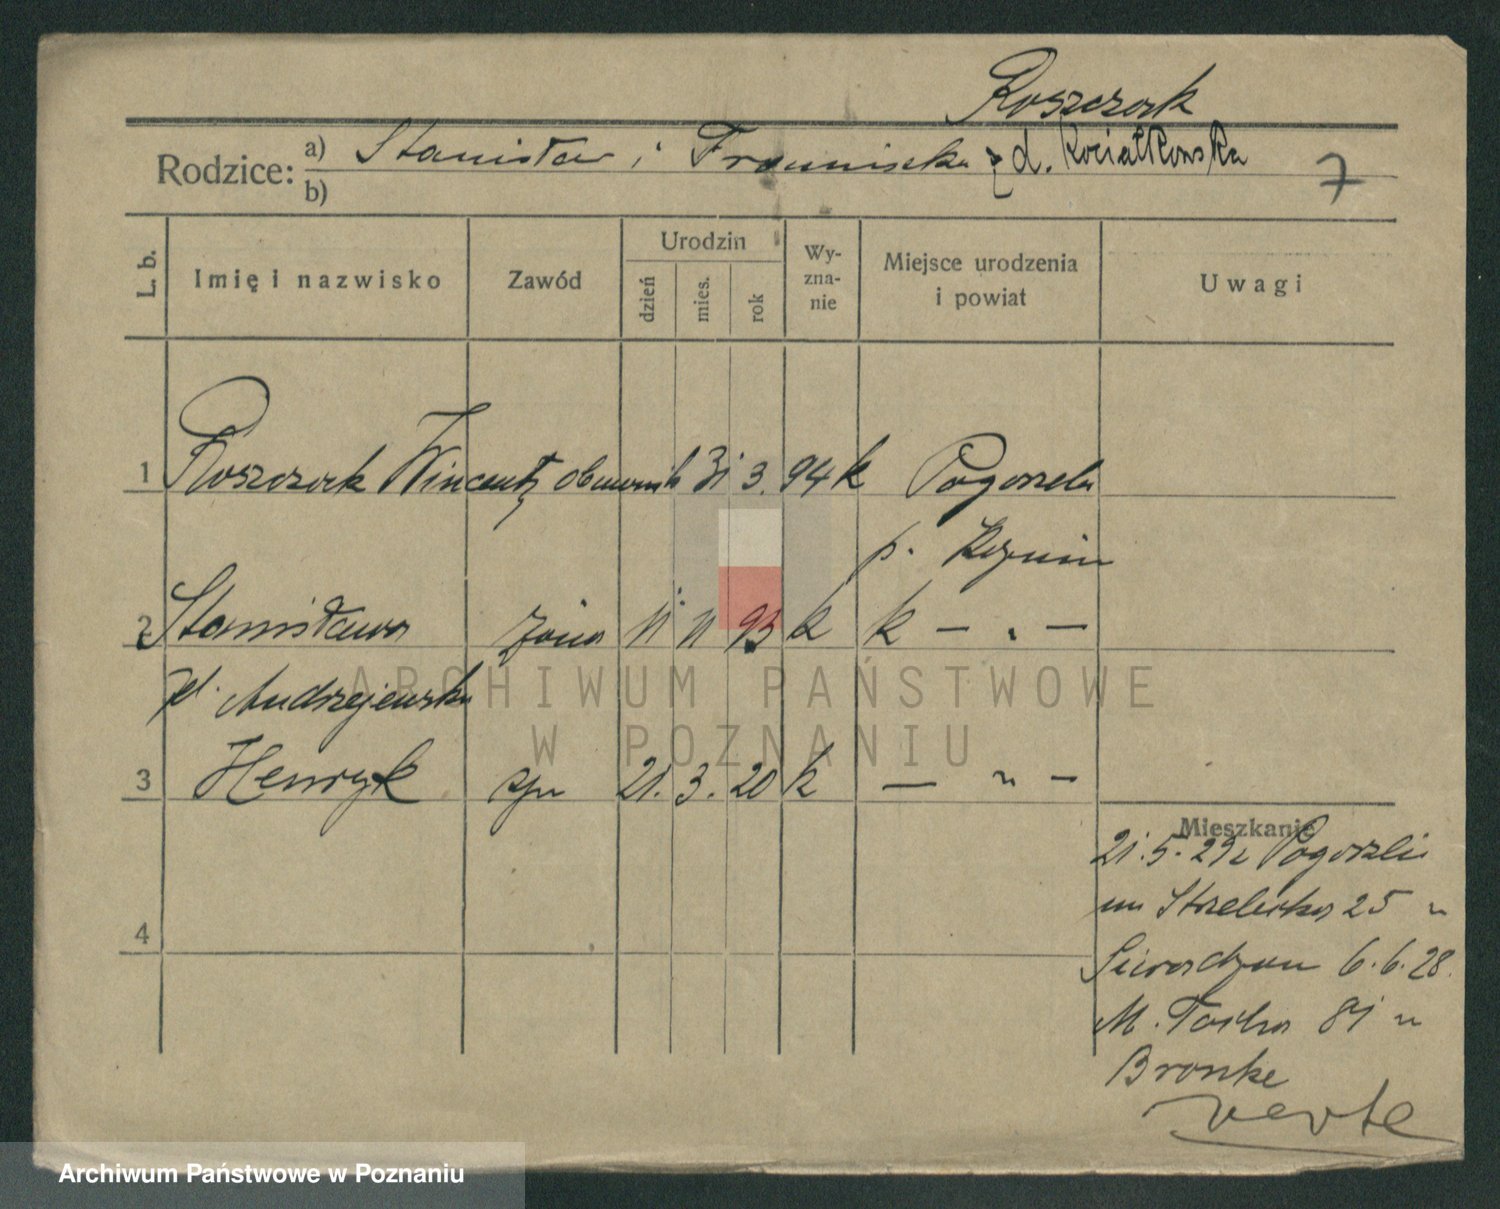 Roszczak
Rodzice: a) Stanisław i Franciszka z d. Kociałkowska
b)
7
L. b.
Imię i nazwisko
Zawód
Urodzin
dzień
mies.
rok
Wy-
zna-
nie
Miejsce urodzenia
i powiat
Uwagi
1 Roszczak Wincenty 31 3. 94 k Pogorzela
p.
2 Stanisława żona 11 11 93 k k — " —
Andrzejewska
3 Henryk syn 21. 3. 20 k — " —
4
Mieszkanie
21.5.29 z Pogorzeli
Strzelecka 25 u
6.6.28.
M. 81 u
Bronke
verte
ARCHIWUM PAŃSTWOWE
W POZNANIU
Archiwum Państwowe w Poznaniu